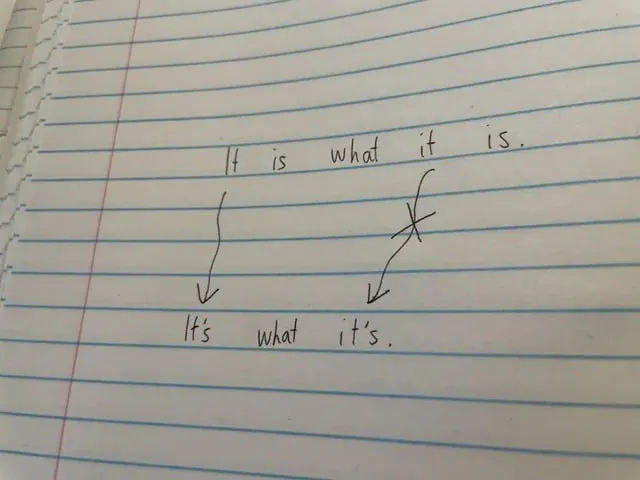 It is what it is.
It's what it's.